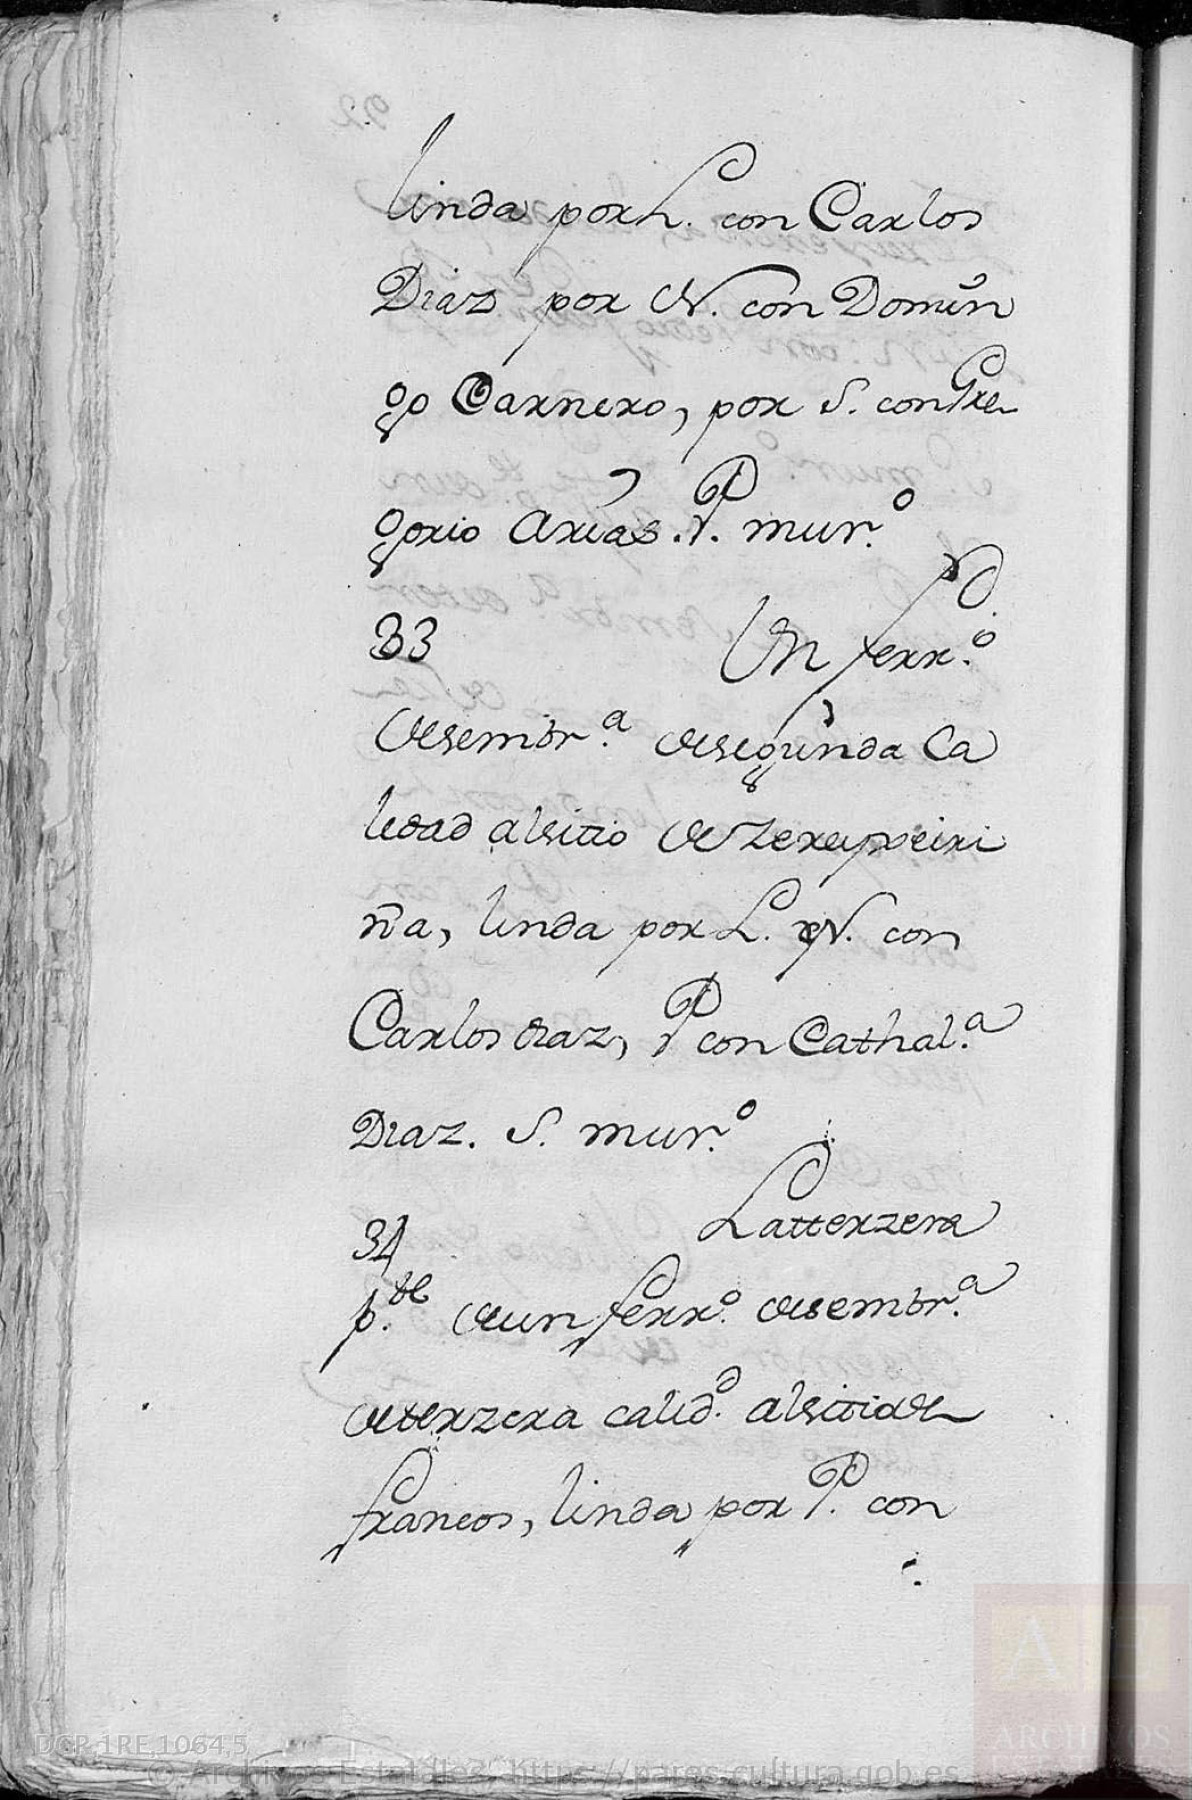 linda por L. con Carlos
Diaz por N. con Domin
go Carnero, por S. con Gre
gorio Arias. P. mur.º
33 Un ferr.º
de sembr.ª de segunda Ca
lidad al sitio de Zereyxeiri
ña, linda por L. y N. con
Carlos diaz, P con Cathal.ª
Diaz. S. mur.º
34 La tterzera
p.te de un ferr.º de sembr.ª
de terzera calid.d al sitio de
francos, linda por P. con
DGP 1RE,1064,5
© Archivos Estatales, https://pares.cultura.gob.es
AE
ARCHIVOS
ESTATALES